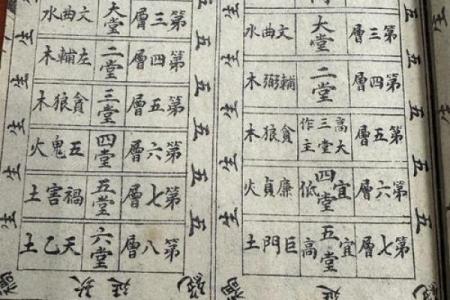 第三層 大堂 文曲水
第四層 二堂 輔弼木
第五層 高大三堂作主 貪狼木
第六層 宜四堂低 廉貞火
第七層 宜五堂高 巨門土
五五五五
生生生生
第三層 大堂 文曲水
第四層 二堂 左輔木
第五層 三堂 貪狼木
第六層 四堂 五鬼火
第七層 五堂 禍害土
第八層 六堂 天乙土
五五五五五
生生生生